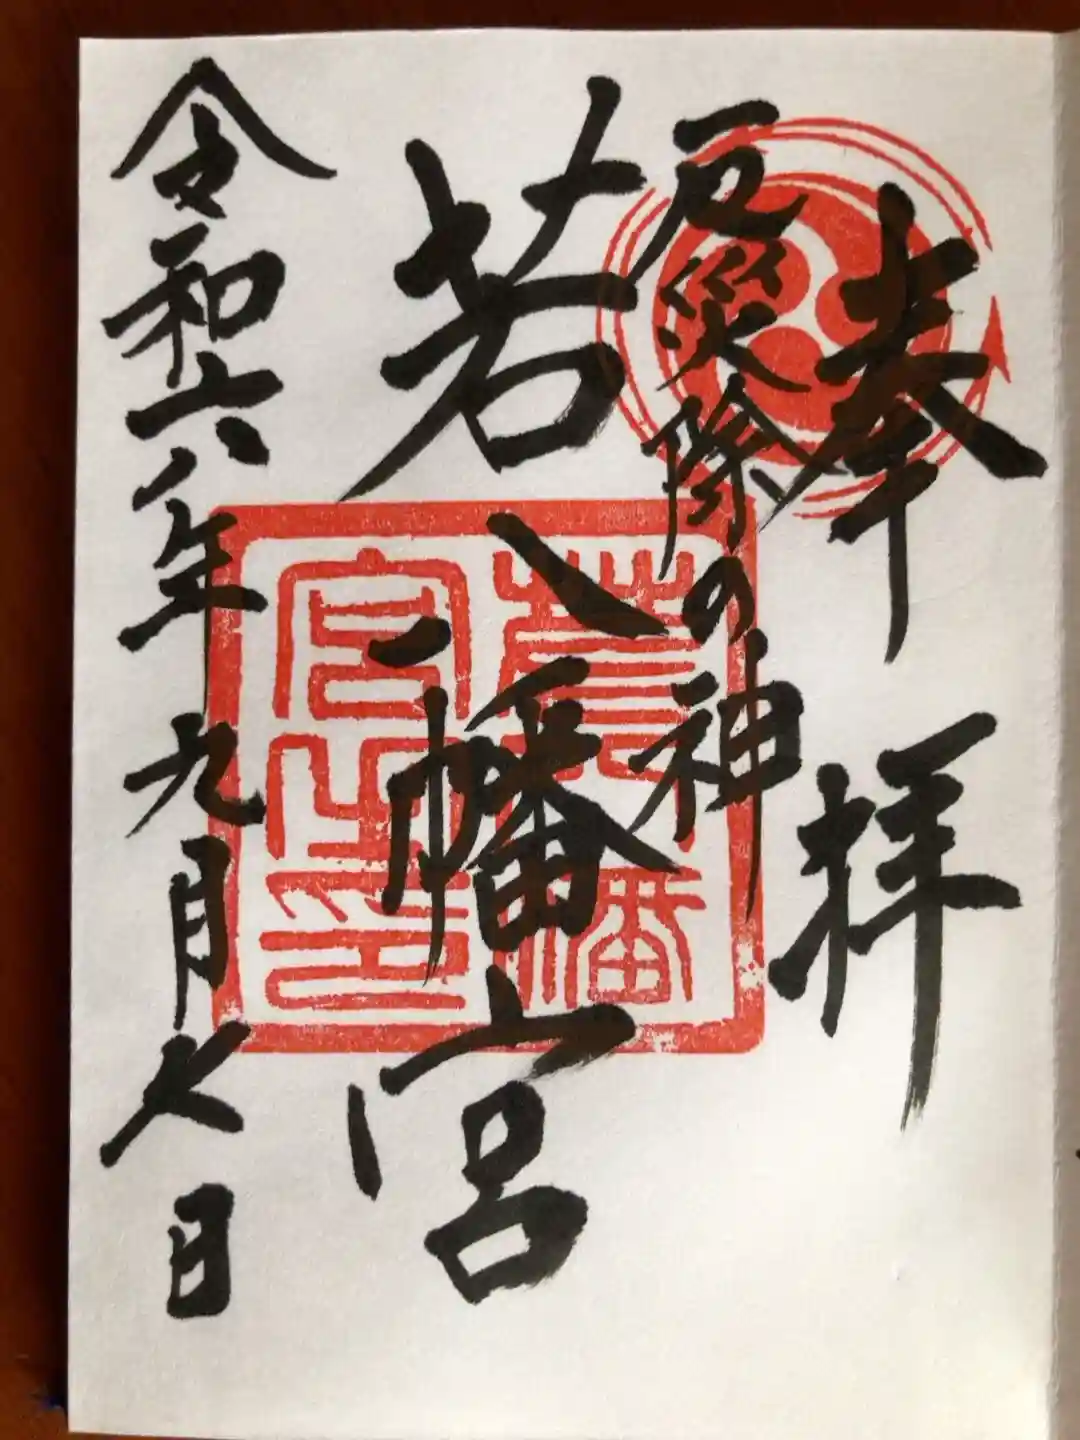 奉拝
厄災除の神
若八幡宮
令和六年九月 日
若八幡
宮之印